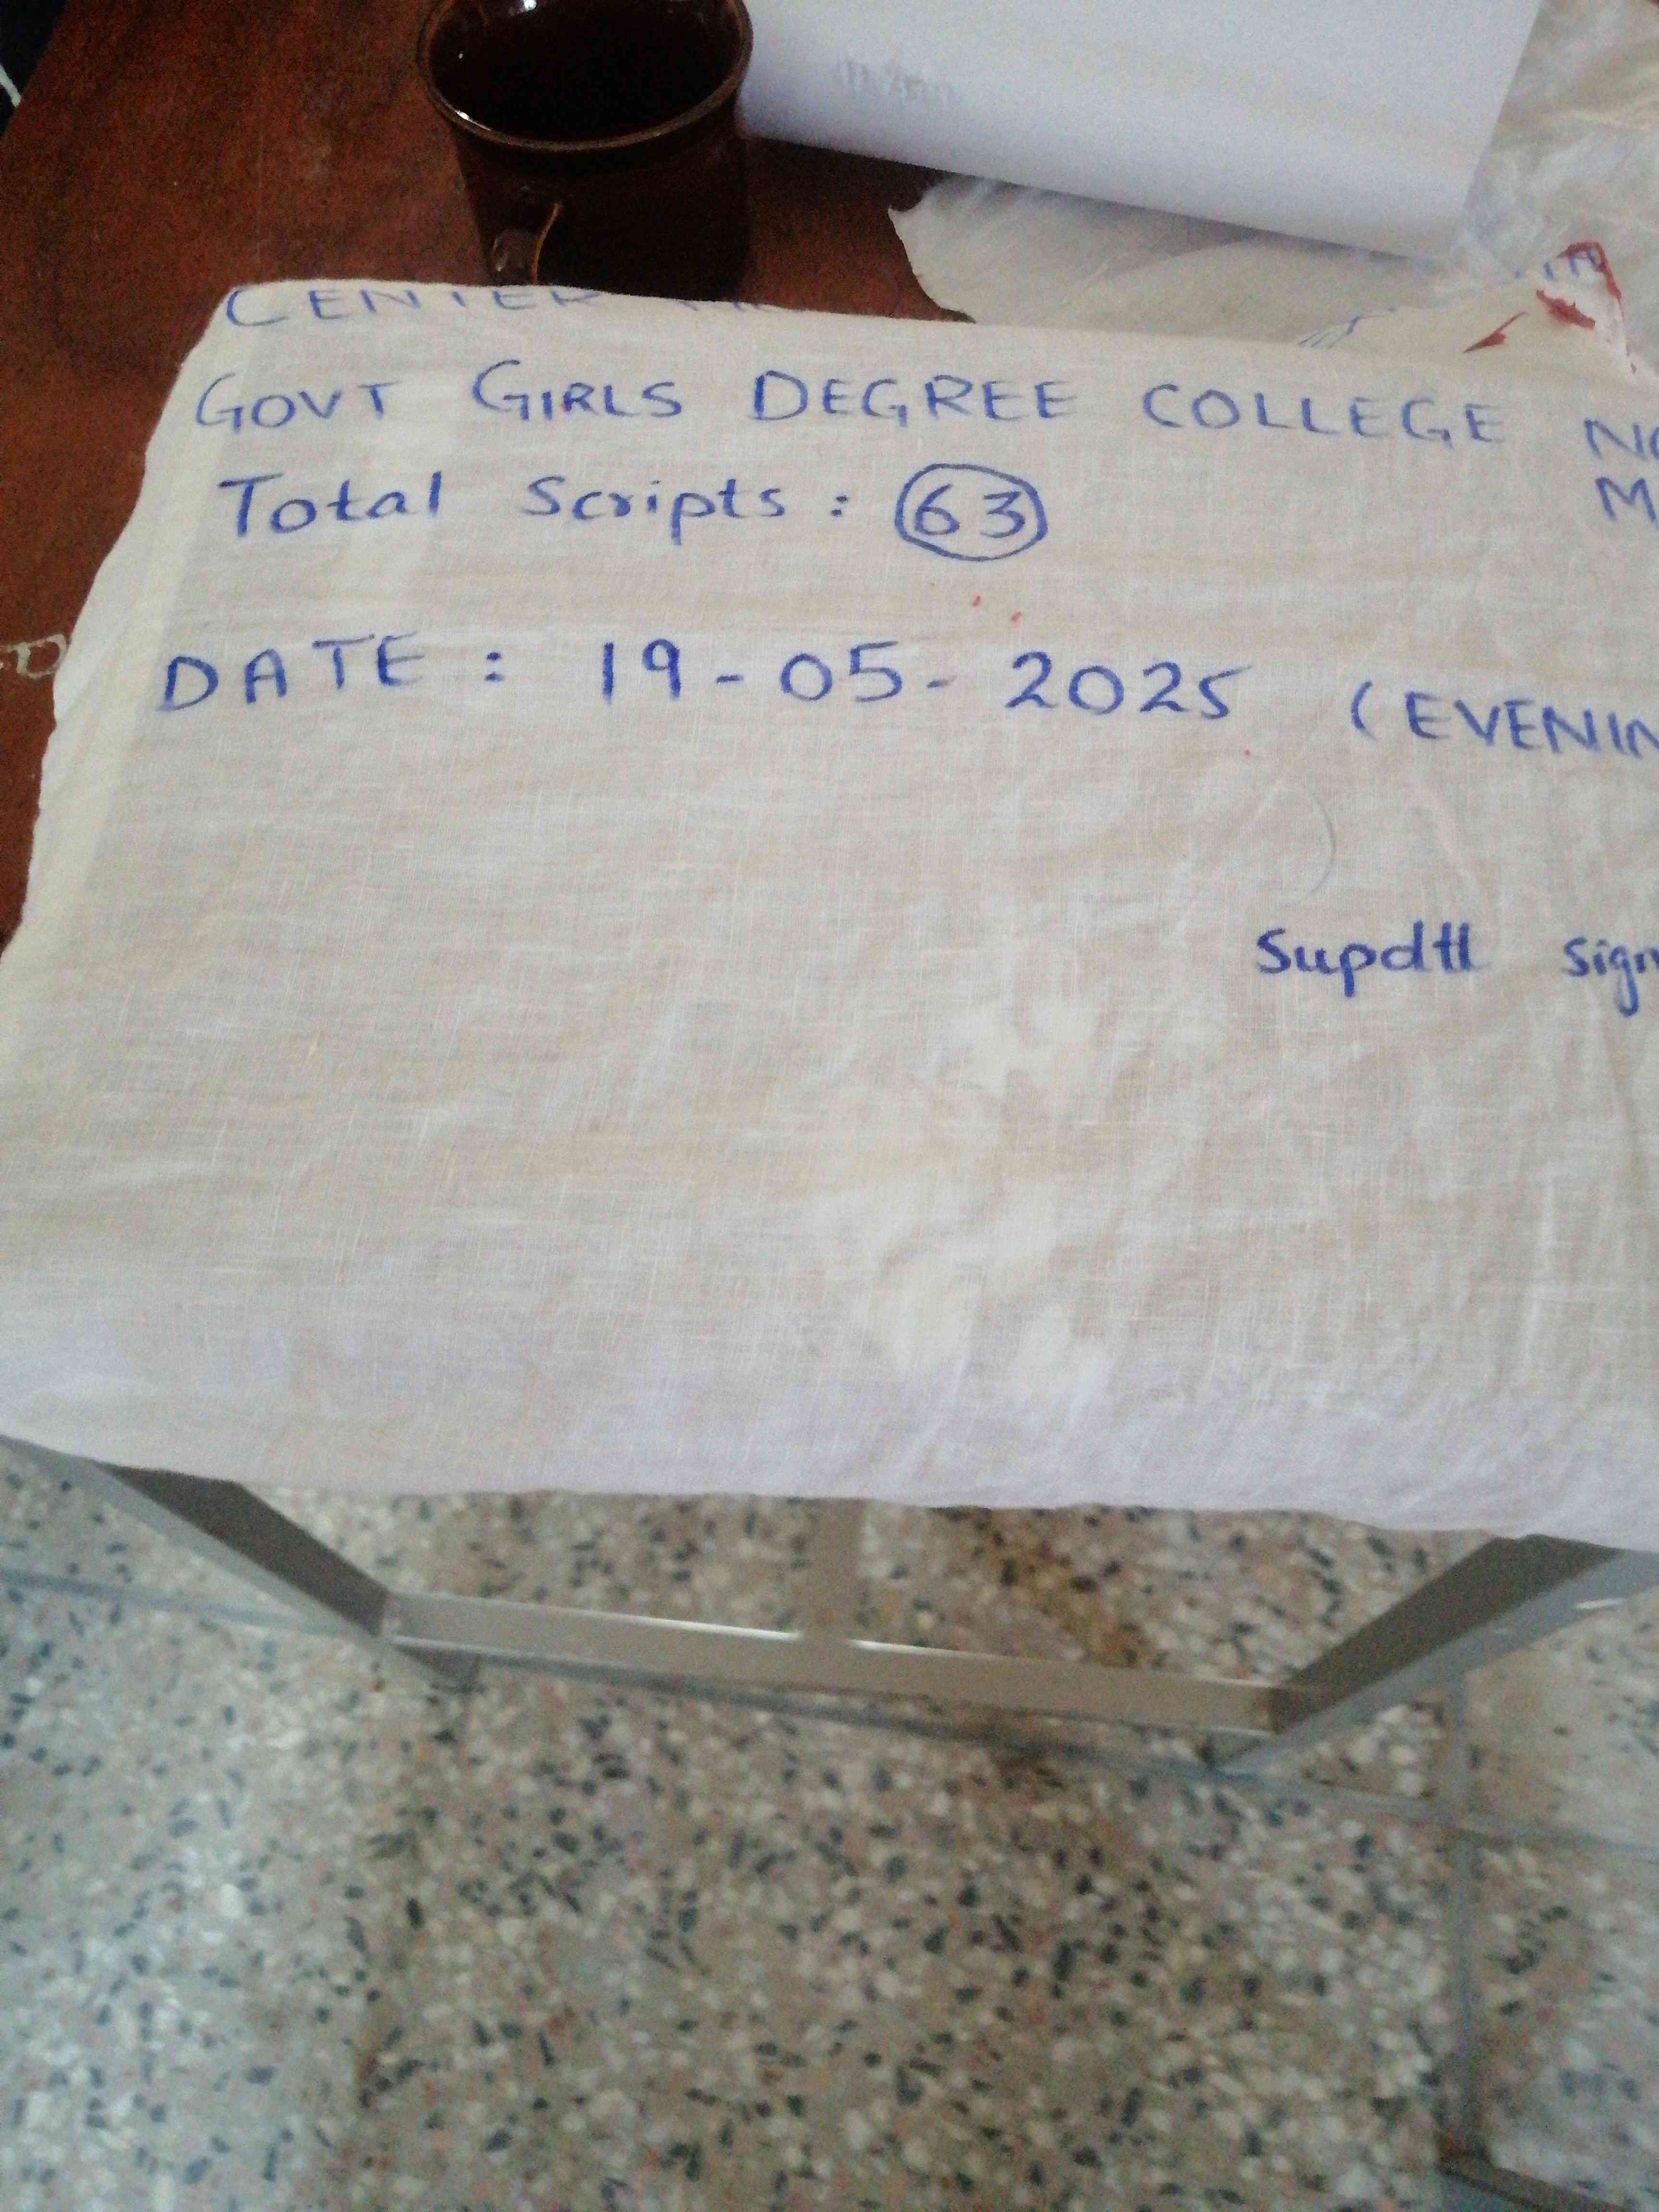 CENTER
GOVT GIRLS DEGREE COLLEGE
Total Scripts : 63
DATE : 19-05-2025 (EVENIN
Supdtt sign